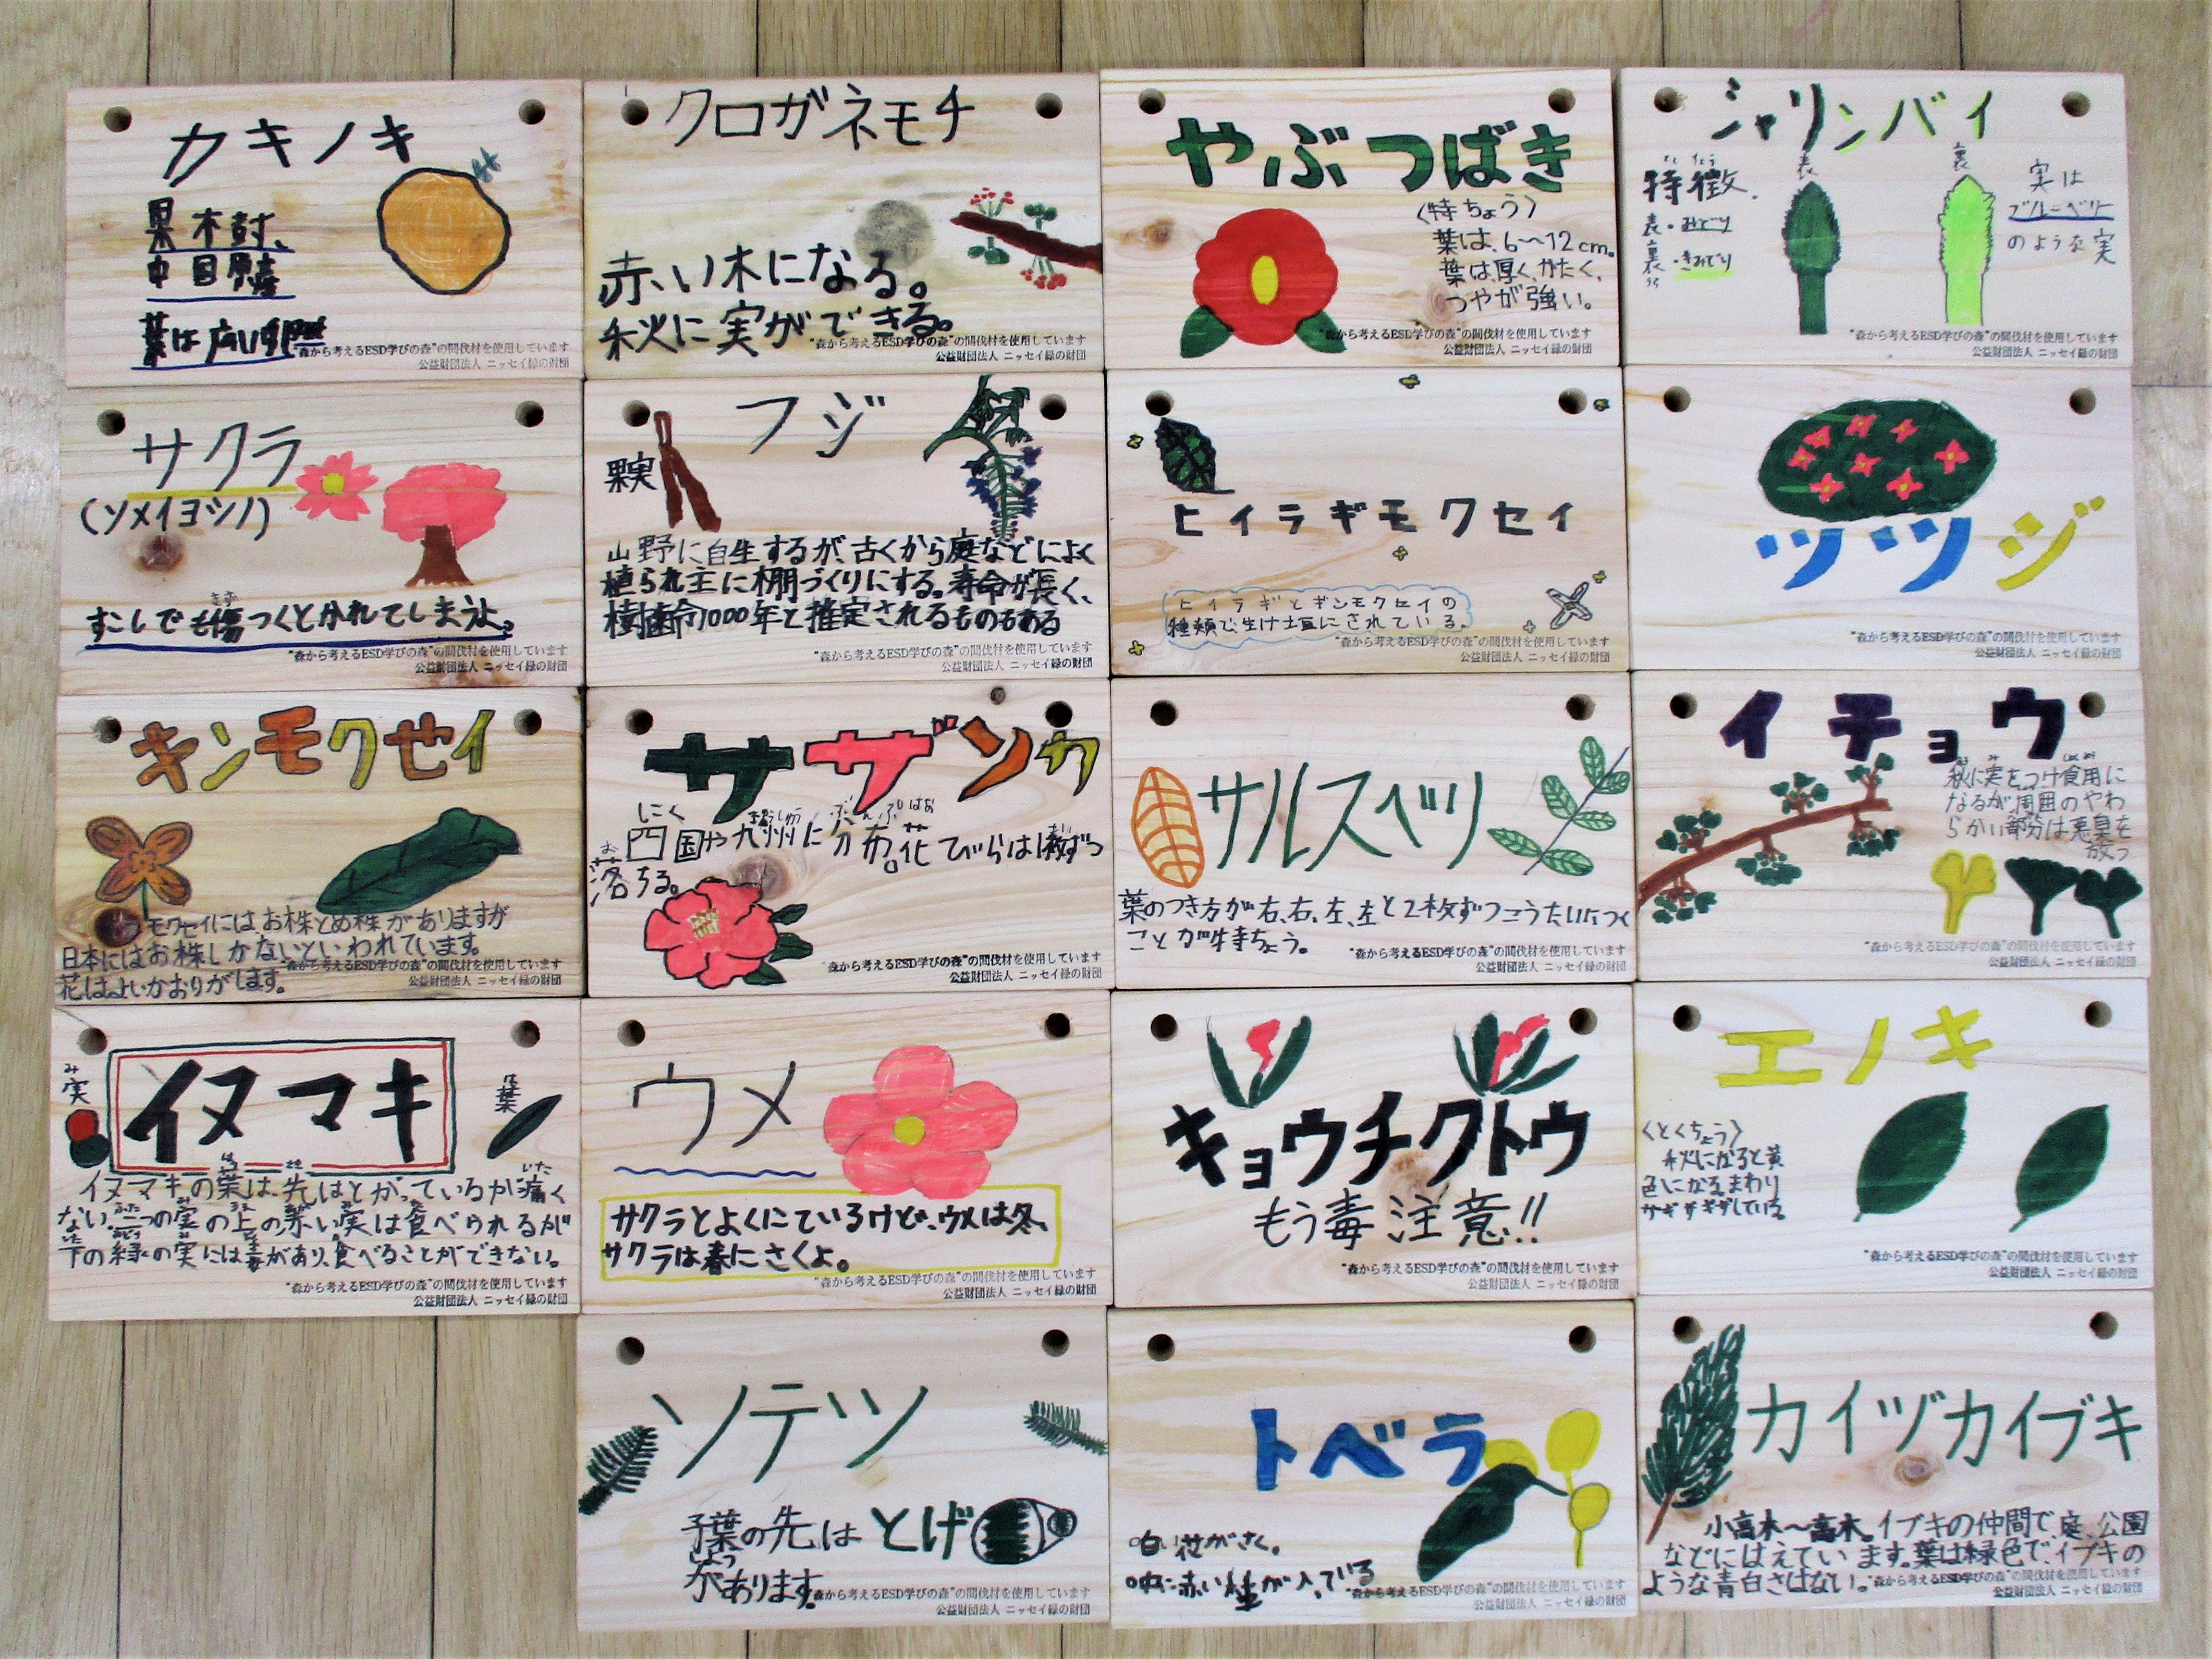 カキノキ
果木樹、
中国原産
葉は広い卵型
"森から考えるESD学びの森"の間伐材を使用しています
公益財団法人 ニッセイ緑の財団
クロガネモチ
赤い木になる。
秋に実ができる。
"森から考えるESD学びの森"の間伐材を使用しています
公益財団法人 ニッセイ緑の財団
やぶつばき
〈特ちょう〉
葉は、6〜12cm。
葉は厚く、かたく、
つやが強い。
"森から考えるESD学びの森"の間伐材を使用しています
公益財団法人 ニッセイ緑の財団
シャリンバイ
とくちょう
特徴
表・みどり
裏・きみどり
うら
表
裏
実は
ブルーベリー
のような実
"森から考えるESD学びの森"の間伐材を使用しています
公益財団法人 ニッセイ緑の財団
サクラ
(ソメイヨシノ)
きず
すこしでも傷つくとかれてしまうよ。
"森から考えるESD学びの森"の間伐材を使用しています
公益財団法人 ニッセイ緑の財団
フジ
果実
山野に自生するが、古くから庭などによく
植られ主に棚づくりにする。寿命が長く、
樹齢1000年と推定されるものもある
"森から考えるESD学びの森"の間伐材を使用しています
公益財団法人 ニッセイ緑の財団
ヒイラギモクセイ
ヒイラギとギンモクセイの
種類で、生け垣にされている。
"森から考えるESD学びの森"の間伐材を使用しています
公益財団法人 ニッセイ緑の財団
ツツジ
"森から考えるESD学びの森"の間伐材を使用しています
公益財団法人 ニッセイ緑の財団
キンモクセイ
モクセイにはお株とめ株がありますが
日本にはお株しかないといわれています。
花はよいかおりがします。
"森から考えるESD学びの森"の間伐材を使用しています
公益財団法人 ニッセイ緑の財団
サザンカ
四国や九州に分布。花びらは1枚ずつ
落ちる。
"森から考えるESD学びの森"の間伐材を使用しています
公益財団法人 ニッセイ緑の財団
サルスベリ
葉のつき方が右、右、左、左と2枚ずつこうたいにつく
ことが特ちょう。
"森から考えるESD学びの森"の間伐材を使用しています
公益財団法人 ニッセイ緑の財団
イチョウ
秋に実をつけ食用に
なるが、周囲のやわ
らかい部分は悪臭を
放つ
"森から考えるESD学びの森"の間伐材を使用しています
公益財団法人 ニッセイ緑の財団
イヌマキ
み
実
は
葉
イヌマキの葉は、先はとがっているが痛く
ない。二つの実の上の赤い実は食べられるが
下の緑の実には毒があり、食べることができない。
"森から考えるESD学びの森"の間伐材を使用しています
公益財団法人 ニッセイ緑の財団
ウメ
サクラとよくにているけど、ウメは冬、
サクラは春にさくよ。
"森から考えるESD学びの森"の間伐材を使用しています
公益財団法人 ニッセイ緑の財団
キョウチクトウ
もう毒注意!!
"森から考えるESD学びの森"の間伐材を使用しています
公益財団法人 ニッセイ緑の財団
エノキ
〈とくちょう〉
秋になると黄
色になる。まわり
ギザギザしている。
"森から考えるESD学びの森"の間伐材を使用しています
公益財団法人 ニッセイ緑の財団
ソテツ
葉の先はとげ
があります。
"森から考えるESD学びの森"の間伐材を使用しています
公益財団法人 ニッセイ緑の財団
トベラ
白い花がさく。
中に赤い種が入っている
"森から考えるESD学びの森"の間伐材を使用しています
公益財団法人 ニッセイ緑の財団
カイヅカイブキ
小高木〜高木。イブキの仲間で、庭、公園
などにはえています。葉は緑色で、イブキの
ような青白さはない。
"森から考えるESD学びの森"の間伐材を使用しています
公益財団法人 ニッセイ緑の財団